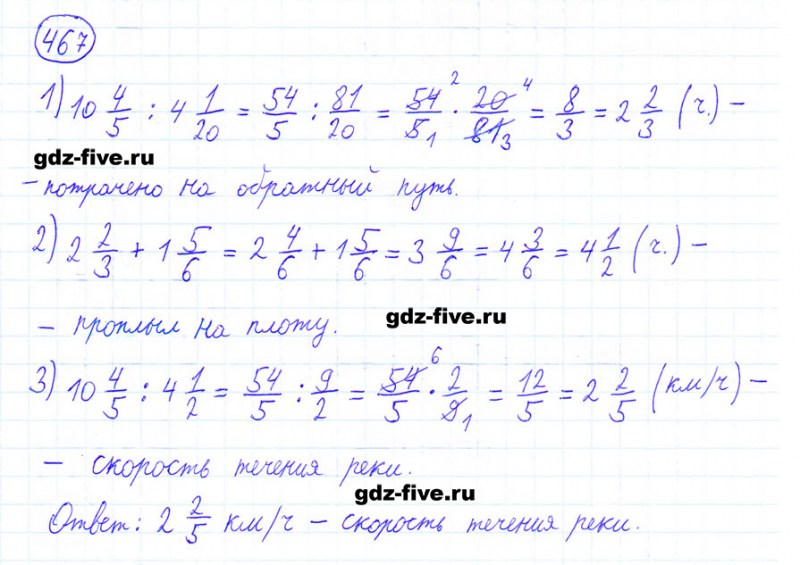 467
1) 10 4/5 : 4 1/20 = 54/5 : 81/20 = 54 2/5 1 · 20 4/81 3 = 8/3 = 2 2/3 (ч.) –
gdz-five.ru
– потрачено на обратный путь.
2) 2 2/3 + 1 5/6 = 2 4/6 + 1 5/6 = 3 9/6 = 4 3/6 = 4 1/2 (ч.) –
– проплыл на плоту.
gdz-five.ru
3) 10 4/5 : 4 1/2 = 54/5 : 9/2 = 54 6/5 · 2/9 1 = 12/5 = 2 2/5 (км/ч) –
– скорость течения реки.
gdz-five.ru
Ответ: 2 2/5 км/ч – скорость течения реки.